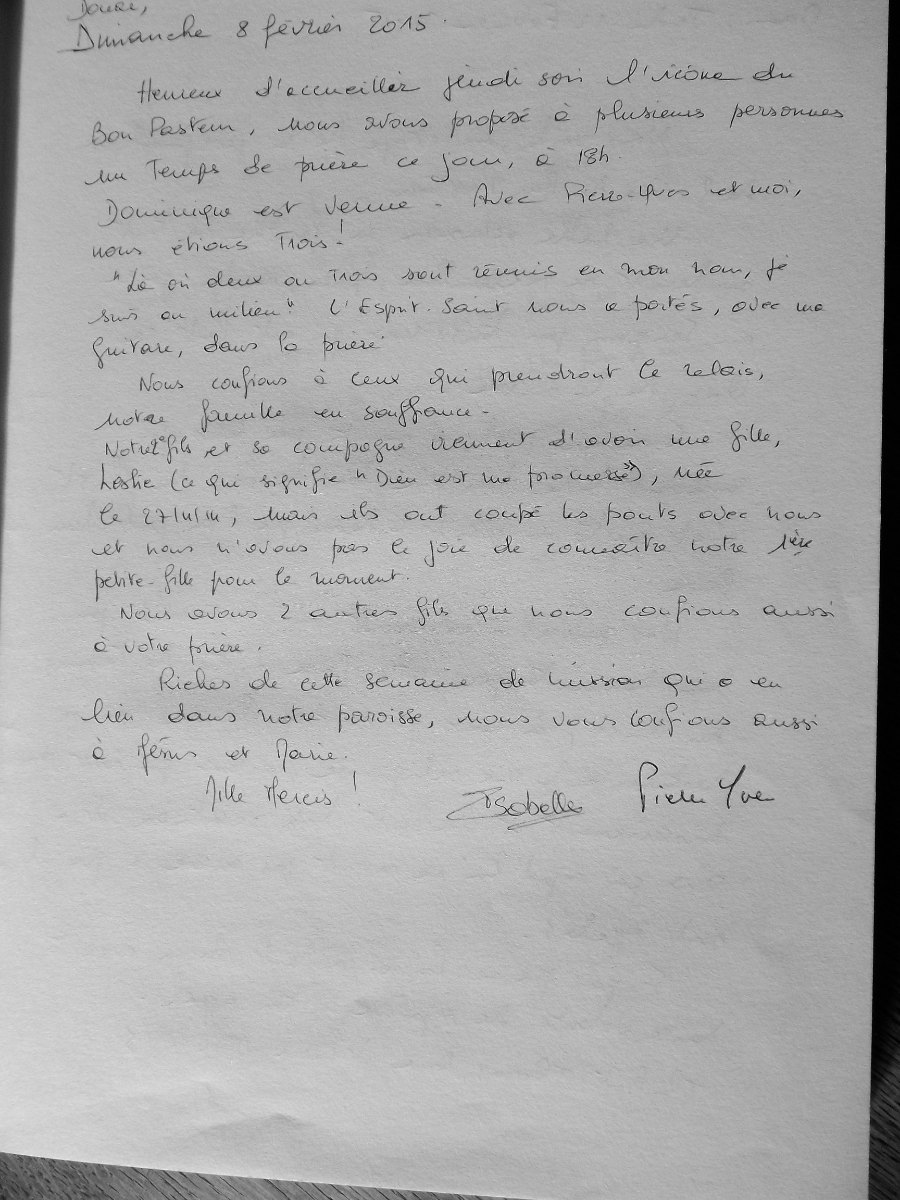 Dimanche 8 février 2015.
Heureux d'accueillir jeudi soir l'icône du
Bon Pasteur, nous avons proposé à plusieurs personnes
un temps de prière ce jour, à 18h.
Dominique est venue. Avec Pierre-Yves et moi,
nous étions Trois !
"Là où deux ou trois sont réunis en mon nom, je
suis au milieu". L'Esprit-Saint nous a portés, avec ma
guitare, dans la prière.
Nous confions à ceux qui prendront le relais,
notre famille en souffrance.
Notre 2e fils et sa compagne viennent d'avoir une fille,
(ce qui signifie "Dieu est ma promesse"), née
le 27/11/14, mais ils ont coupé les ponts avec nous
et nous n'avons pas la joie de connaître notre 1ère
petite-fille pour le moment.
Nous avons 2 autres fils que nous confions aussi
à votre prière.
Riches de cette semaine de mission qui a eu
lieu dans notre paroisse, nous vous confions aussi
à Jésus et Marie.
Mille Mercis !
Isabelle Pierre Yves